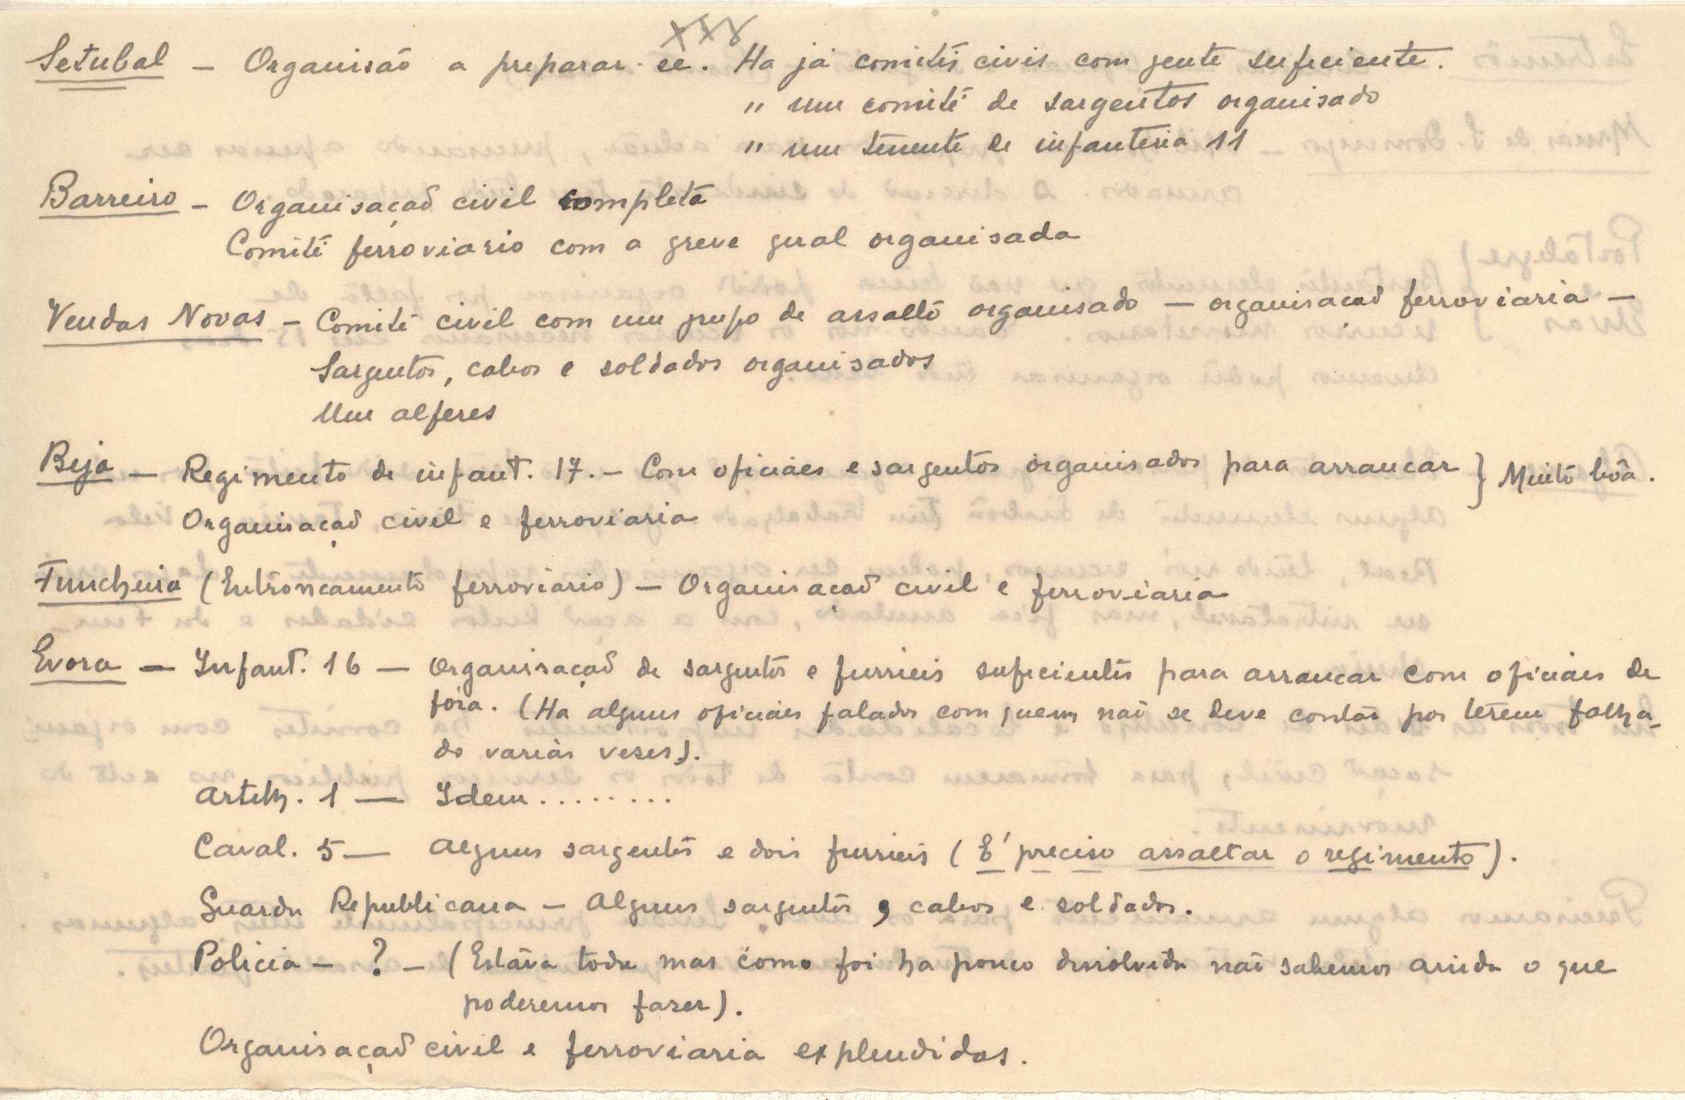 XIV
Setubal – Organisaão a preparar-se. Ha já comités civis com gente suficiente.
" um comité de sargentos organisado
" um tenente de infanteria 11
Barreiro – Organisação civil completa
Comité ferroviario com a greve geral organisada
Vendas Novas – Comité civil com um grupo de assalto organisado – organisação ferroviaria –
Sargentos, cabos e soldados organisados
Um alferes
Beja – Regimento de infant. 17. – Com oficiaes e sargentos organisados para arrancar } Muito bôa.
Organisação civil e ferroviaria
Funcheira (Entroncamento ferroviario) – Organisação civil e ferroviaria
Evora – Infant. 16 – Organisação de sargentos e furrieis suficientes para arrancar com oficiaes de
fóra. (Ha alguns oficiaes falados com quem não se deve contar por terem falha-
do varias vezes).
Artilh. 1 – Idem........
Caval. 5 – Alguns sargentos e dois furrieis (É preciso assaltar o regimento).
Guarda Republicana – Alguns sargentos, cabos e soldados.
Policia – ? – (Estava toda mas como foi ha pouco dissolvida não sabemos ainda o que
poderemos fazer).
Organisação civil e ferroviaria explendidas.